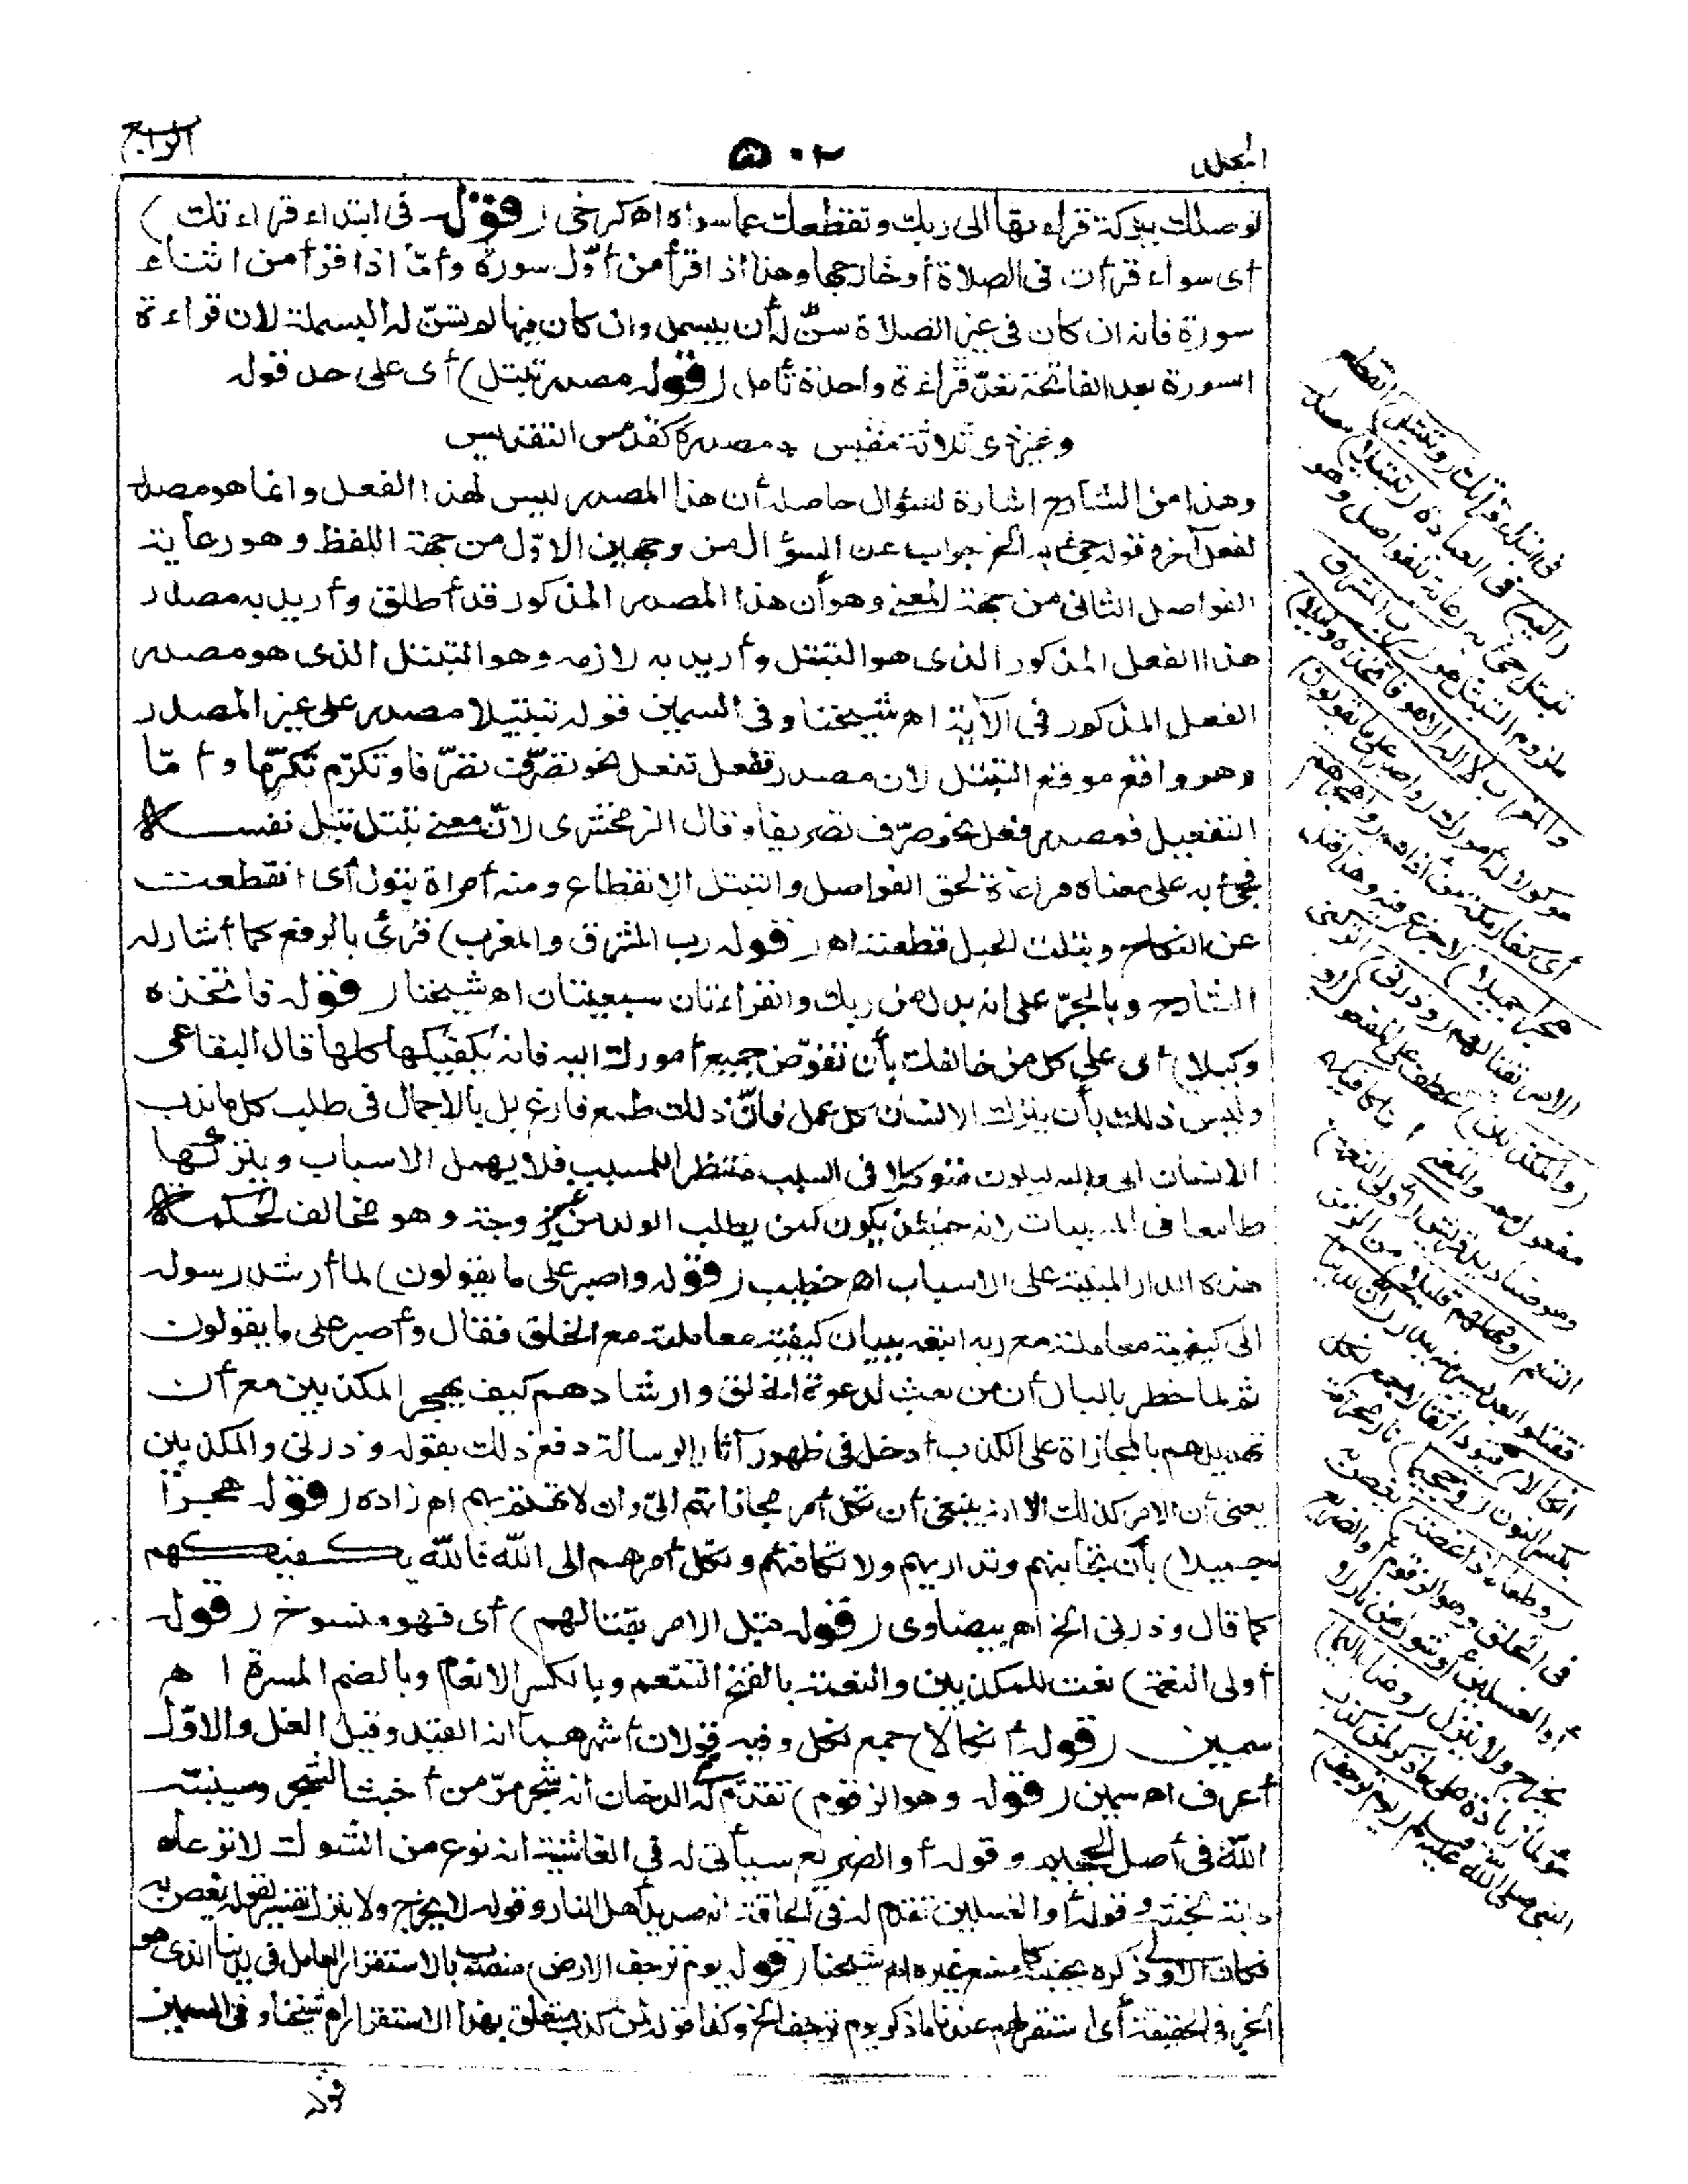 الرابع
٥٠٢
الجلد
توصلك ببركة قراءتها الى ربك وتقطعك عما سواه اه كرخى (قوله فى ابتداء قراءتك)
أى سواء قرأت فى الصلاة أو خارجها وهذا اذا قرأ من أوّل سورة وأمّا اذا قرأ من اثناء
سورة فانه ان كان فى غير الصلاة سنّ له أن يبسمل وان كان فيها لم تسنّ له البسملة لان قراءة
السورة بعد الفاتحة تعدّ قراءة واحدة تأمل (قوله مصدر تبتل) أى على حد قوله
وغير ذى ثلاثة مقيس * مصدره كقدّس التقديس
وهذا من الشارح اشارة لسؤال حاصله أن هذا المصدر ليس لهذا الفعل وانما هو مصدر
لفعل آخر وقوله جىء به الخ جواب عن السؤال من وجهين الاوّل من جهة اللفظ وهو رعاية
الفواصل الثانى من جهة المعنى وهو أن هذا المصدر المذكور قد أطلق وأريد به مصدر
هذا الفعل المذكور الذى هو التبتل وأريد به لازمه وهو التبتل الذى هو مصدر
الفعل المذكور فى الآية اه شيخنا وفى السمين قوله تبتيلا مصدر على غير المصدر
وهو واقع موقع التبتل لان مصدر تفعل تفعل نحو تصرّف تصرّفا وتكرّم تكرّما وأمّا
التفعيل فمصدر فعل نحو صرّف تصريفا وقال الزمخشرى لانّ معنى تبتل بتل نفسه
فجىء به على معناه مراعاة لحق الفواصل والتبتل الانقطاع ومنه امرأة بتول أى انقطعت
عن النكاح وبتلت الحبل قطعته اه (قوله رب المشرق والمغرب) قرئ بالرفع كما أشار له
الشارح وبالجرّ على انه بدل من ربك والقراءتان سبعيتان اه شيخنا (قوله فاتخذه
وكيلا) أى على كل من خالفك بأن تفوّض جميع أمورك اليه فانه يكفيكها كلها قال البقاعى
وليس ذلك بأن يترك الانسان كل عمل فانّ ذلك طمع فارغ بل بالاجمال فى طلب كل ما ندب
الانسان الى طلبه ليكون متوكلا فى السبب منتظرا للمسبب فلا يهمل الاسباب ويتركها
طامعا فى المسببات لانه حينئذ يكون كمن يطلب الولد من غير زوجة وهو مخالف لحكمة
هذه الدار المبنية على الاسباب اه خطيب (قوله واصبر على ما يقولون) لما أرشد رسوله
الى كيفية معاملته مع ربه اتبعه ببيان كيفية معاملته مع الخلق فقال وأصبر على ما يقولون
ثم لما خطر بالبال أن من بعث لدعوة الخلق وارشادهم كيف يهجر المكذبين مع أن
تهديدهم بالمجازاة على الكذب أدخل فى ظهور آثار الرسالة دفع ذلك بقوله وذرنى والمكذبين
يعنى أن الامر كذلك الا انه ينبغى أن تكل أمر مجازاتهم الىّ وان لا تهتم بهم اه زاده (قوله هجرا
جميلا) بأن تجانبهم وتداريهم ولا تكافئهم وتكل أمرهم الى الله فالله يكفيكهم
كما قال وذرنى الخ اه بيضاوى (قوله قبل الامر بقتالهم) أى فهو منسوخ (قوله
أولى النعمة) نعت للمكذبين والنعمة بالفتح التنعم وبالكسر الانعام وبالضم المسرة اه
سمين (قوله أنكالا) جمع نكل وفيه قولان أشهرهما انه القيد وقيل الغل والاوّل
أعرف اه سمين (قوله وهو الزقوم) تقدّم له فى الدخان انه شجر مرّ من أخبث الشجر وسينبته
الله فى أصل الجحيم وقوله أو الضريع سيأتى له فى الغاشية انه نوع من الشوك لا ترعاه
دابة لخبثه وقوله أو الغسلين تقدم له فى الحاقة انه صديد أهل النار وقوله لا يخرج ولا ينزل تفسير لقوله يغص به
فكان الاولى ذكره بجنبه كما صنع غيره اه شيخنا (قوله يوم ترجف الارض) منصوب بالاستقرار العامل فى لدينا الذى هو
الخبر فى الحقيقة أى استقر لهم عندنا ما ذكر يوم ترجف الخ وكذا قوله لمن كذب متعلق بهذا الاستقرار اه شيخنا وفى السمين
قوله
فى ابتداء قراءتك (وتبتل) انقطع
(اليه) فى العبادة (تبتيلا) مصدر
تبتل جىء به رعاية للفواصل وهو
ملزوم التبتل هو (رب المشرق
والمغرب لا اله الا هو فاتخذه وكيلا)
موكولا له أمورك (واصبر على ما يقولون)
أى كفار مكة من أذاهم (واهجرهم
هجرا جميلا) لا جزع فيه وهذا قبل
الامر بقتالهم (وذرنى) اتركنى
(والمكذبين) عطف على المفعول أو
مفعول معه والمعنى أنا كافيكهم
وهم صناديد قريش (أولى النعمة)
التنعم (ومهلهم قليلا) من الزمن
فقتلوا بعد يسير منه ببدر (ان لدينا
أنكالا) قيودا ثقالا جمع نكل
بكسر النون (وجحيما) نارا محرقة
(وطعاما ذا غصة) يغص به
فى الحلق وهو الزقوم أو الضريع
أو الغسلين أو شوك من نار لا
يخرج ولا ينزل (وعذابا أليما)
مؤلما زيادة على ما ذكر لمن كذب
النبى صلى الله عليه وسلم (يوم ترجف)